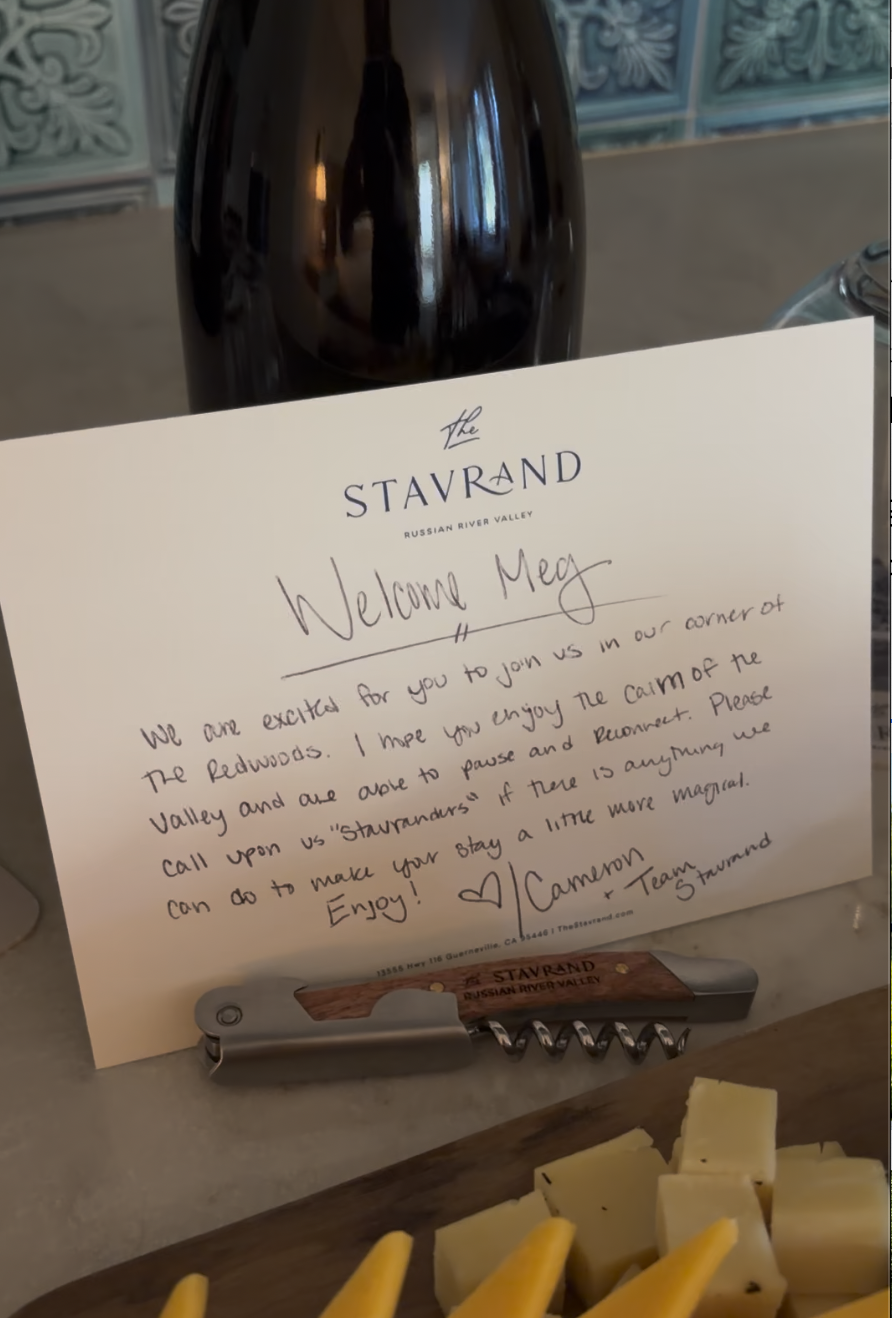 the
STAVRAND
RUSSIAN RIVER VALLEY
Welcome Meg
We are excited for you to join us in our corner of
the Redwoods. I hope you enjoy the calm of the
valley and are able to pause and Reconnect. Please
call upon us "Stavranders" if there is anything we
can do to make your stay a little more magical.
Enjoy! ♡/Cameron
+ Team
Stavrand
13555 Hwy 116 Guerneville, CA 95446 | TheStavrand.com
the STAVRAND
RUSSIAN RIVER VALLEY